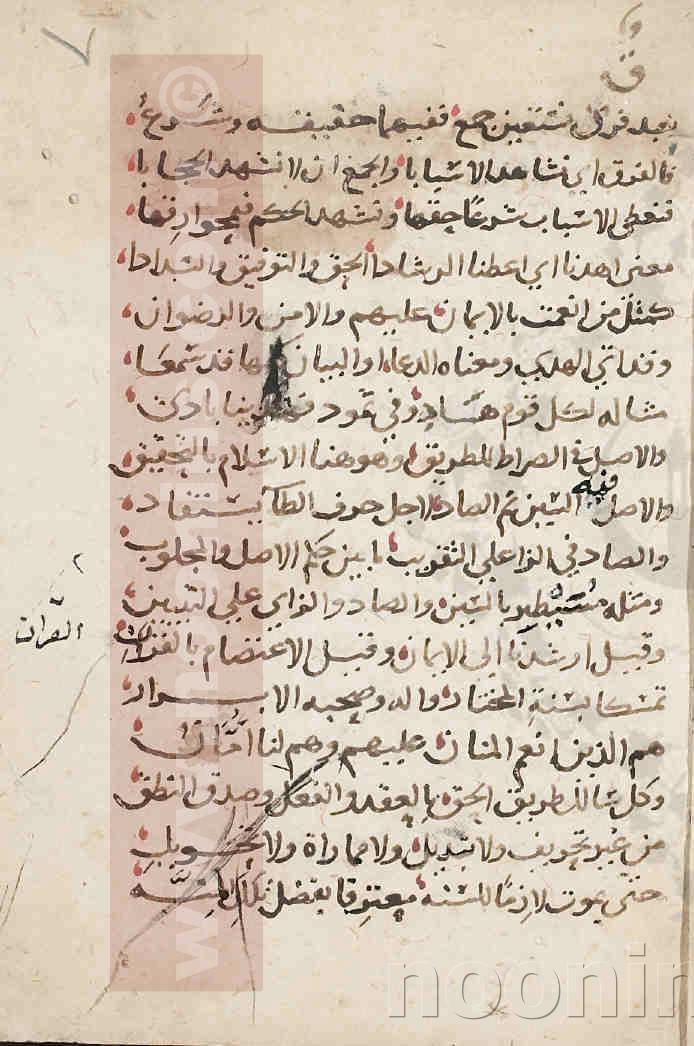 ٧
ق
بعبد فرق نستعين جمع ففيهما حقيقة وشرع
فالفرق اي نشاهد الاسبابا والجمع ان لا نشهد الحجابا
فنعطي الاسباب شرعا حقها ونشهد الحكم
معنى اهدنا اي اعطنا الرشادا الحق والتوفيق والسدادا
كمثل من انعمت بالايمان عليهم والامن والرضوان
وقد اتى الهدى ومعناه الدعا او البيان قد سمعا
مثاله لكل قوم هاد وفي ثمود بادي
والاصل في الصراط للطريق وهو هنا الاسلام بالتحقيق
والاصل فيه السين ثم الصاد لاجل حرف الطا يستفاد
والصاد في الزا على التقريب ما بين حكم الاصل والمجلوب
ومثله مسيطر بالسين والصاد والزاي على التبيين
وقيل ارشدنا الى الايمان وقيل الاعتصام بالقران
القران
تمسكا بسنة المختار واله وصحبه الابرار
هم الذين انعم المنان عليهم وهم لنا امان
وكل سالك طريق الحق بالعقد والفعل وصدق النطق
من غير تحريف ولا تبديل ولا مماراة ولا تحويل
حتى يموت لازما للسنه معترفا بفضل تلك المنه
noonin